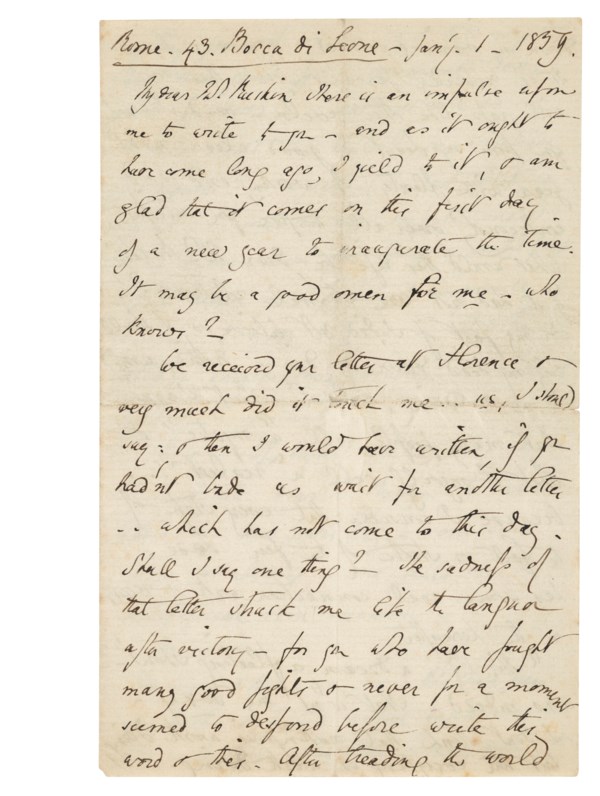 Rome. 43. Bocca di Leone - Jany. 1 - 1859.
My dear Mr. Ruskin there is an impulse upon
me to write to you - and as it ought to
have come long ago, I yield to it, & am
glad that it comes on this first day
of a new year to inaugurate the time.
It may be a good omen for me - who
knows?
We received your letter at Florence &
very much did it touch me .. us, I should
say: & then I would have written, if you
hadn't bade us wait for another letter
.. which has not come to this day.
Shall I say one thing? - The sadness of
that letter struck me like the languor
after victory - for you who have fought
many good fights & never for a moment
seemed to despond before write this
word & this. After treading the world